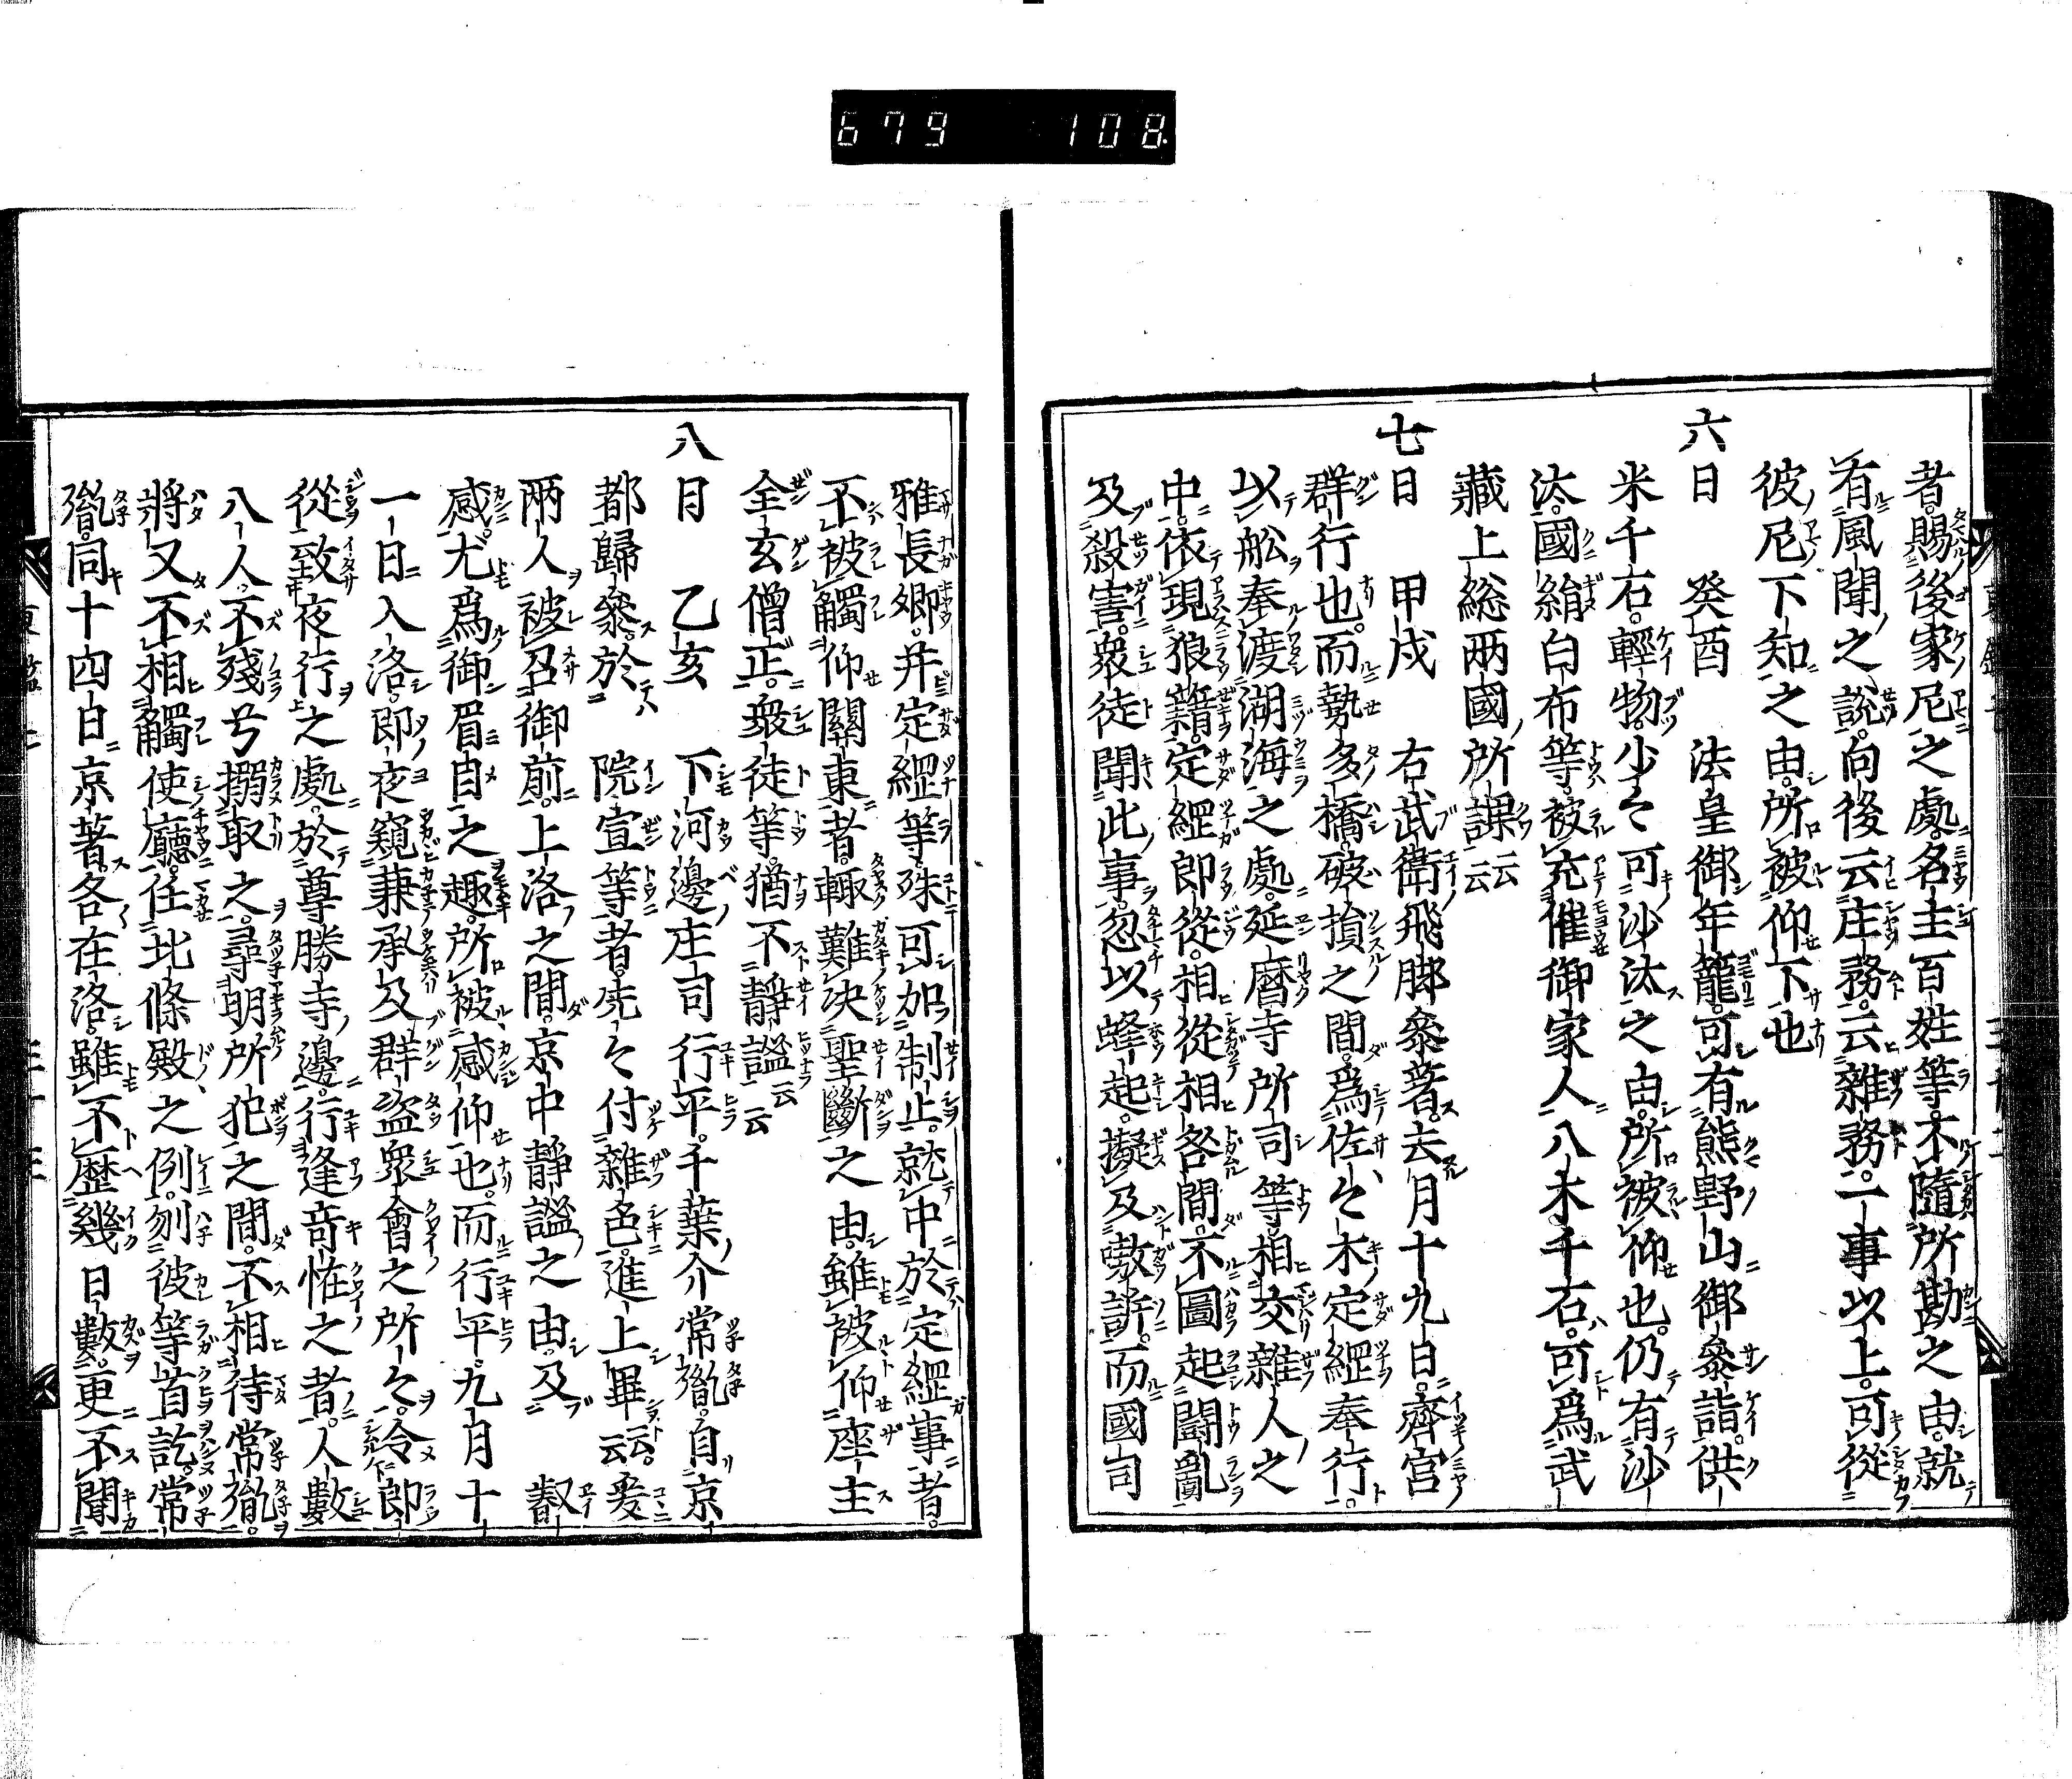 679 108
者。賜後家尼之處。名主百姓等。不隨所勘之由。就
有風聞之説。向後云庄務云雜務。一事以上。可從
彼尼下知之由。所被仰下也
六日 癸酉 法皇御年籠。可有熊野山御參詣。供
米千石。輕物。少々可沙汰之由。所被仰也。仍有沙
汰。國絹白布等。被充催御家人。八木千石。可爲武
藏上総兩國所課云云
七日 甲戌 右武衛飛脚參著。去月十九日。齊宮
群行也。而勢多橋。破損之間。爲佐々木定綱奉行。
以舩奉渡湖海之處。延暦寺所司等。相交雜人之
中。依現狼藉。定綱郎從。相從相咎間。不圖起鬪亂
及殺害。衆徒聞此事。忽以蜂起。擬及嗷訴。而國司
雅長卿。并定綱等。殊可加制止。就中於定綱事者。
不被觸仰關東者。輙難决聖斷之由。雖被仰座主
全玄僧正。衆徒等。猶不靜謐云云
八日 乙亥 下河邊庄司行平。千葉介常胤。自京
都歸參。於 院宣等者。先々付雜色。進上畢云云。爰
兩人被召御前。上洛之間。京中靜謐之由。及 叡
感。尤爲御眉目之趣。所被感仰也。而行平。九月十
一日入洛。即夜窺兼承及群盗衆會之所々。令郎
從致夜行之處。於尊勝寺邊。行逢竒恠之者。人數
八人。不殘兮搦取之。尋明所犯之間。不相待常胤。
將又不相觸使廳。任北條殿之例。刎彼等首訖。常
胤。同十四日京著。各在洛。雖不歴幾日數。更不聞